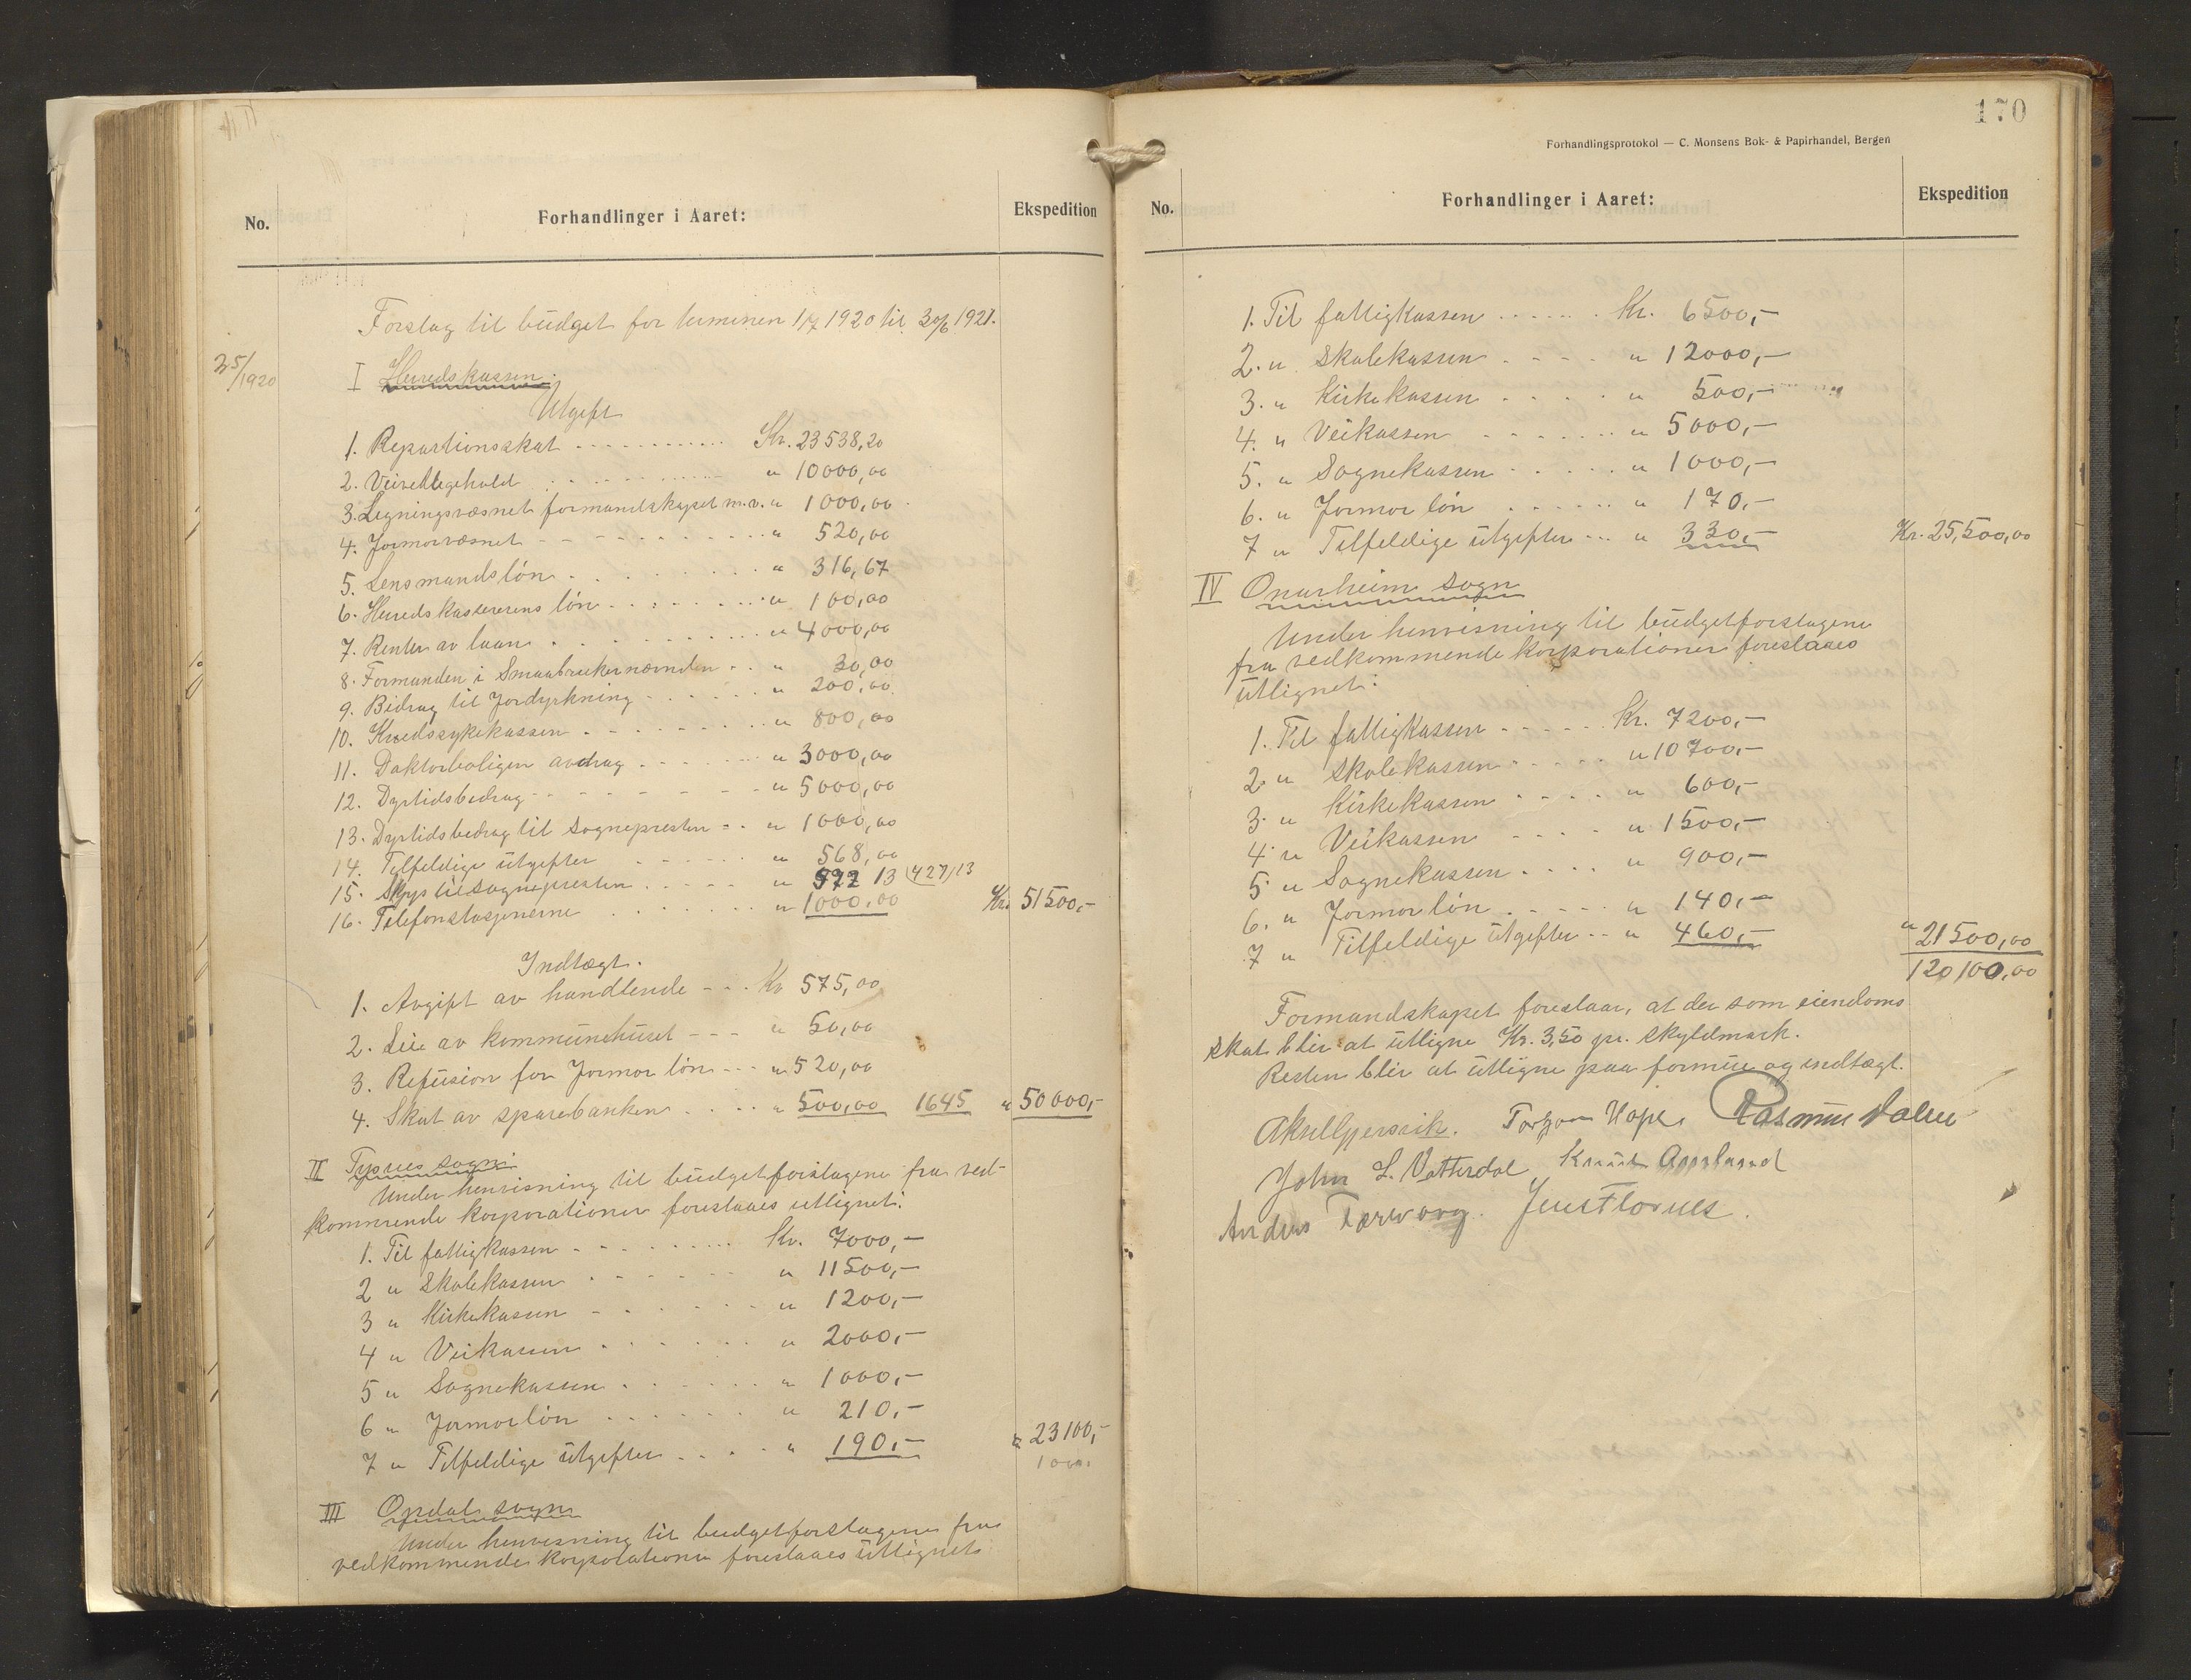 No.
Forhandlinger i Aaret:
Ekspedition
Forslag til büdget for terminen 1/7 1920 til 30/6 1921.
3 5/1920
I Herredskassen.
Utgift
1. Repartionsskat ------------ Kr. 23538,20
2. Veivedlegehold ............ " 10000,00
3. Legningsvæsnet formandskapet m.v. " 1000,00
4. Jormorvæsnet --------- " 520,00
5. Lensmandsløn . . . . . . . " 316,67
6. Herredskassererens løn . . . . . " 100,00
7. Renter av laan . . . . . . . " 4000,00
8. Formanden i Smaabrukernævnden . . " 30,00
9. Bidrag til Jordyrkning . . . . . " 200,00
10. Kredssykekassen . . . . . . " 800,00
11. Doktorboligen avdrag . . . . . " 3000,00
12. Dyrtidsbedrag - - - - - - - " 5000,00
13. Dyrtidsbedrag til Sognepresten - . " 1000,00
14. Tilfeldige ütgifter . . . . . . " 568,00
15. Skyss til Sognepresten . . . . . " 13 (427,13
16. Telefonstasjonerne . . . . . . " 1000,00 Kr. 51500,-
Indtægt.
1. Avgift av handlende - - - Kr 575,00
2. Leie av kommünehüset - - - " 50,00
3. Refüsion for Jormorløn - - - " 520,00
4. Skat av sparebanken . . . . " 500,00 1645 " 50000,-
II Tysnes sogn:
Under henvisning til büdgetforslagene fra ved-
kommende korporationer foreslaaes utlignet:
1. Til fattigkassen - - - - - - - Kr. 7000,-
2 " Skolekassen . - - - - - " 11500,-
3 " Kirkekassen - . . . . . " 1200,-
4 " Veikassen . . . . . . " 2000,-
5 " Sognekassen . . . . . . " 1000,-
6 " Jormorløn . . . . . . " 210,-
7 " Tilfeldige ütgifter . . . . " 190,- " 23100,-
1000
III Opdal sogn
Under henvisning til budgetforslagene fra
vedkommende korporationer foreslaaes ütlignet
170
Forhandlingsprotokol — C. Monsens Bok- & Papirhandel, Bergen
No.
Forhandlinger i Aaret:
Ekspedition
1. Til fattigkassen . . . . . . Kr. 6500,-
2. " Skolekassen . - - - - " 12000,-
3. " Kirkekassen . . . . . " 500,-
4. " Veikassen - - - - . . . " 5000,-
5. " Sognekassen . . . . . " 1000,-
6. " Jormorløn . . . . . . " 170,-
7 " Tilfeldige ütgifter . . . " 330,- Kr. 25,500,00
IV Onarheim Sogn
Under henvisning til büdgetforslagene
fra vedkommende korporationer foreslaaes
ütlignet:
1. Til fattigkassen . . . . . Kr. 7200,-
2 " Skolekassen . . . . . " 10700,-
3 " Kirkekassen . . . . " 600,-
4 " Veikassen - - - . " 1500,-
5 " Sognekassen . . . . " 900,-
6. " Jormorløn . . . . . " 140,-
7 " Tilfeldige ütgifter . . " 460,- " 21500,00
120100,00
Formandskapet foreslaar, at der som eiendoms
skat blir at ütligne Kr. 3,50 pr. skyldmark.
Resten blir at ütligne paa formüe og indtægt.
Aksel Gjersvik. Torgom Hope. Rasmus Dalen
John L. Vatterdal Knüt Aarland
Anders Tærvang. Jens Flornes.